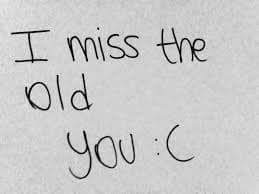 I miss the
old
you :C